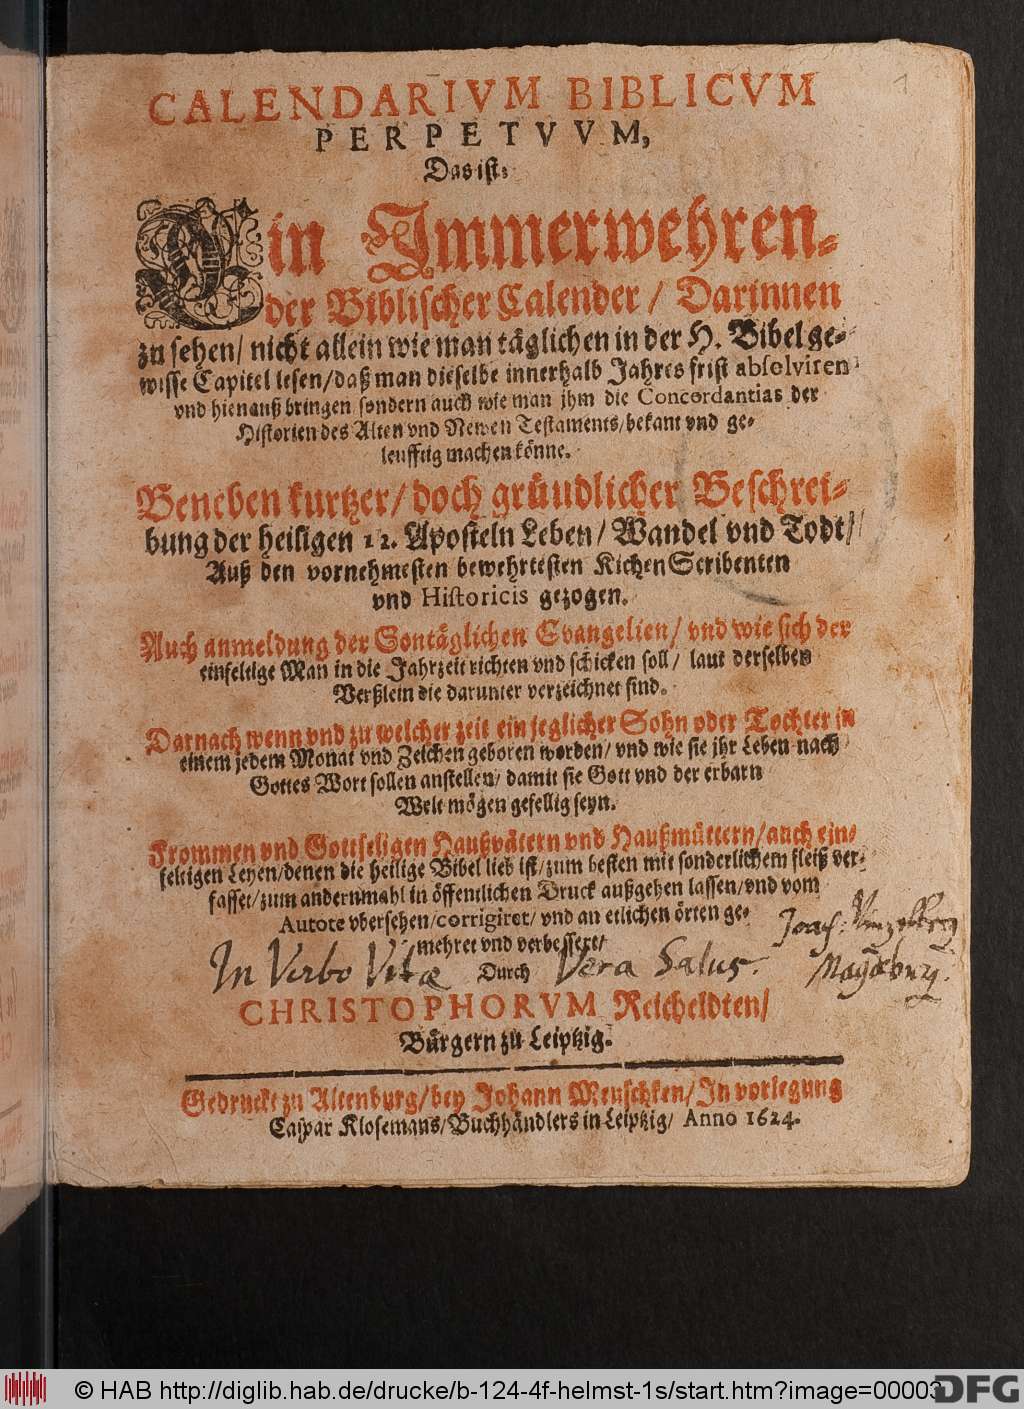 1
CALENDARIVM BIBLICVM
PERPETVVM,
Das ist:
Ein Immerwehren-
der Biblischer Calender / Darinnen
zu sehen / nicht allein wie man täglichen in der H. Bibel ge-
wisse Capitel lesen / daß man dieselbe innerhalb Jahres frist absolviren
vnd hienauß bringen / sondern auch wie man jhm die Concordantias der
Historien des Alten vnd Newen Testaments / bekant vnd ge-
leufftig machen könne.
Beneben kurtzer / doch gründlicher Beschrei-
bung der heiligen 12. Aposteln Leben / Wandel vnd Todt /
Auß den vornehmesten bewehrtesten Kichen Scribenten
vnd Historicis gezogen.
Auch anmeldung der Sontäglichen Evangelien / vnd wie sich der
einfeltige Man in die Jahrzeit richten vnd schicken soll / laut derselben
Verßlein die darunter verzeichnet sind.
Darnach wenn vnd zu welcher zeit ein jeglicher Sohn oder Tochter in
einem jedem Monat vnd Zeichen geboren worden / vnd wie sie jhr Leben nach
Gottes Wort sollen anstellen / damit sie Gott vnd der erbarn
Welt mögen gefellig seyn.
Frommen vnd Gottseligen Haußvätern vnd Haußmüttern / auch ein-
feltigen Leyen / denen die heilige Bibel lieb ist / zum besten mit sonderlichem fleiß ver-
fasset / zum andernmahl in öffentlichen Druck außgehen lassen / vnd vom
Autore vbersehen / corrigiret / vnd an etlichen örten ge-
mehret vnd verbessert /
Joach:
In Verbo Vitæ Durch Vera Salus.
Magdeburg.
CHRISTOPHORVM Reicheldten /
Bürgern zu Leipzig.
Gedruckt zu Altenburg / bey Johann Meuschken / In vorlegung
Caspar Klosemans / Buchhändlers in Leipzig / Anno 1624.
© HAB http://diglib.hab.de/drucke/b-124-4f-helmst-1s/start.htm?image=00003
DFG